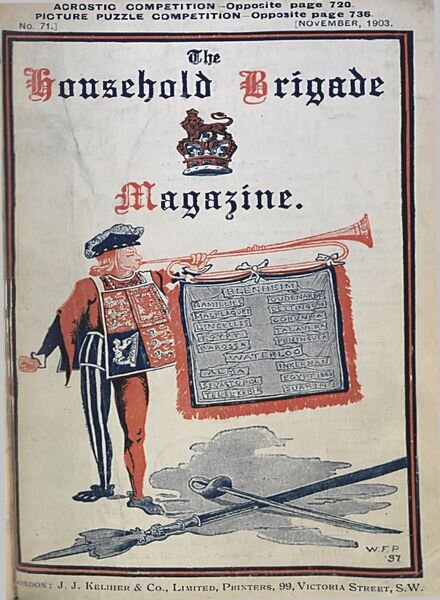 ACROSTIC COMPETITION—Opposite page 720.
PICTURE PUZZLE COMPETITION—Opposite page 736.
No. 71.] [NOVEMBER, 1903.
The
Household Brigade
Magazine.
BLENHEIM
RAMILLIES OUDENARDE
MALPLAQUET DETTINGEN
LINCELLES CORUNNA
TALAVERA
BAROSSA PENINSULA
WATERLOO
ALMA INKERMAN
SEVASTOPOL EGYPT 1882
TEL-EL-KEBIR SUAKIN
W.F.P
97
LONDON: J. J. KELIHER & CO., LIMITED, PRINTERS, 99, VICTORIA STREET, S.W.